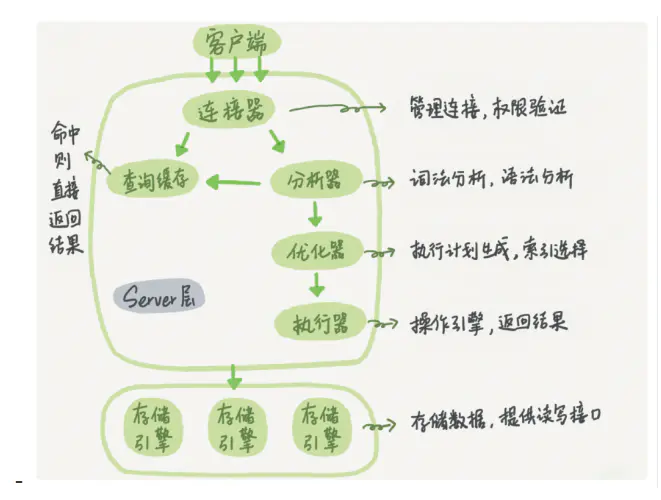 客户端
连接器
管理连接,权限验证
命中
则
直接
返回
结果
查询缓存
分析器
词法分析,语法分析
优化器
执行计划生成,索引选择
Server层
执行器
操作引擎,返回结果
存储
引擎
存储
引擎
存储
引擎
存储数据,提供读写接口